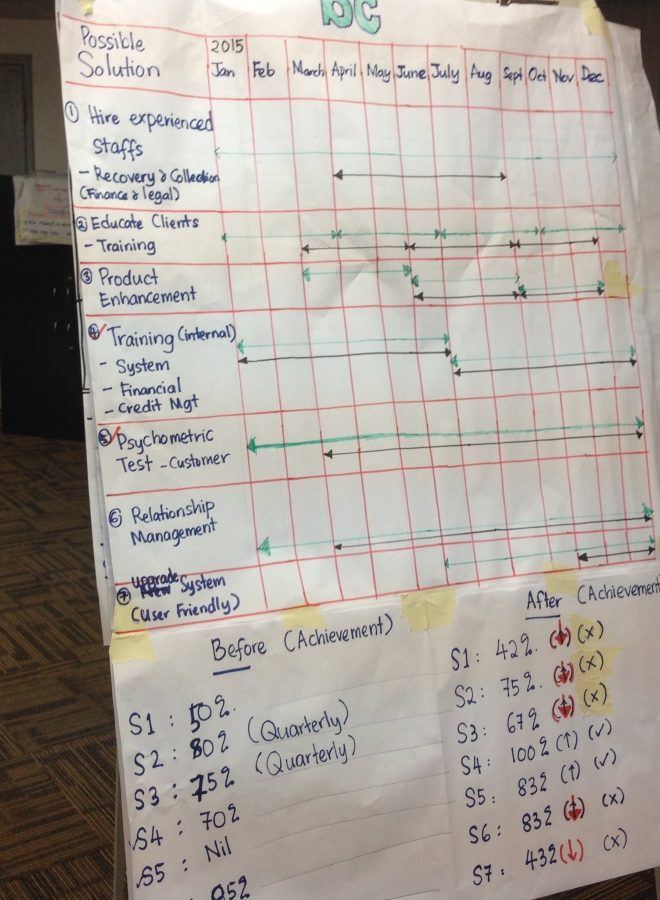 DC
Possible
Solution
2015
Jan Feb March April May June July Aug Sept Oct Nov Dec
① Hire experienced
Staffs
- Recovery & Collection
(Finance & legal)
② Educate Clients
- Training
③ Product
Enhancement
④ Training (internal)
- System
- Financial
- Credit Mgt
⑤ Psychometric
Test - Customer
⑥ Relationship
Management
upgrade
⑦ New System
(User Friendly)
Before (Achievement)
S1 : 50%
S2 : 80% (Quarterly)
S3 : 75% (Quarterly)
S4 : 70%
S5 : Nil
95%
After (Achievement
S1 : 42% (↓) (x)
S2 : 75% (↓) (x)
S3 : 67% (↓) (x)
S4 : 100% (↑) (✓)
S5 : 83% (↑) (✓)
S6 : 83% (↓) (x)
S7 : 43% (↓) (x)